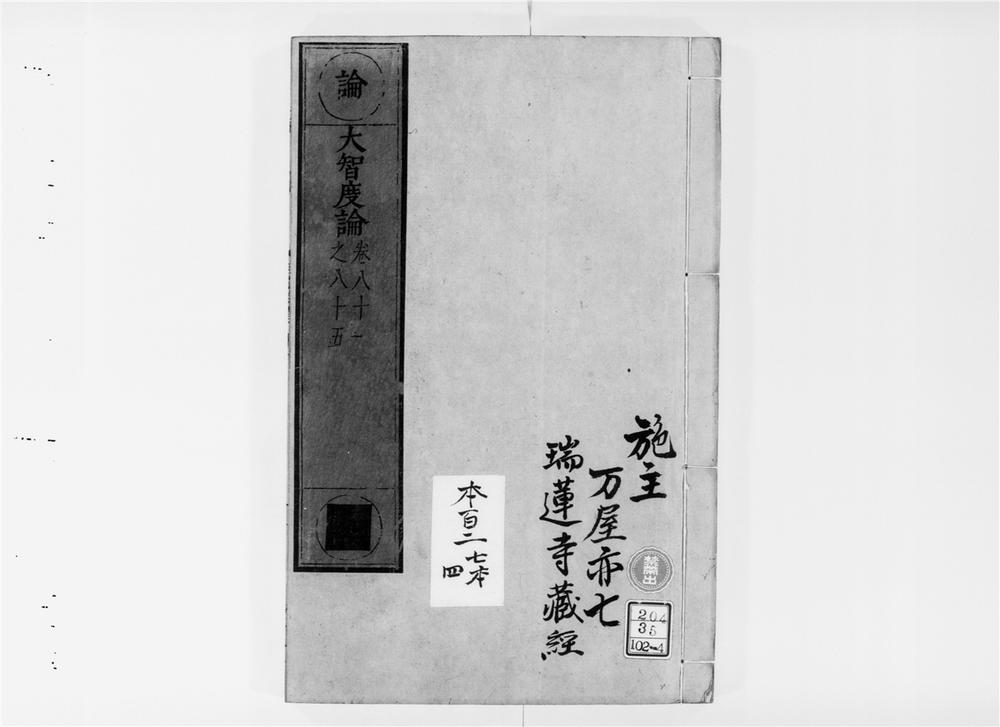 論
大智度論
卷八十一
之八十五
施主
万屋亦七
瑞蓮寺藏經
本百二
七本
四
禁出
204
35
102-4